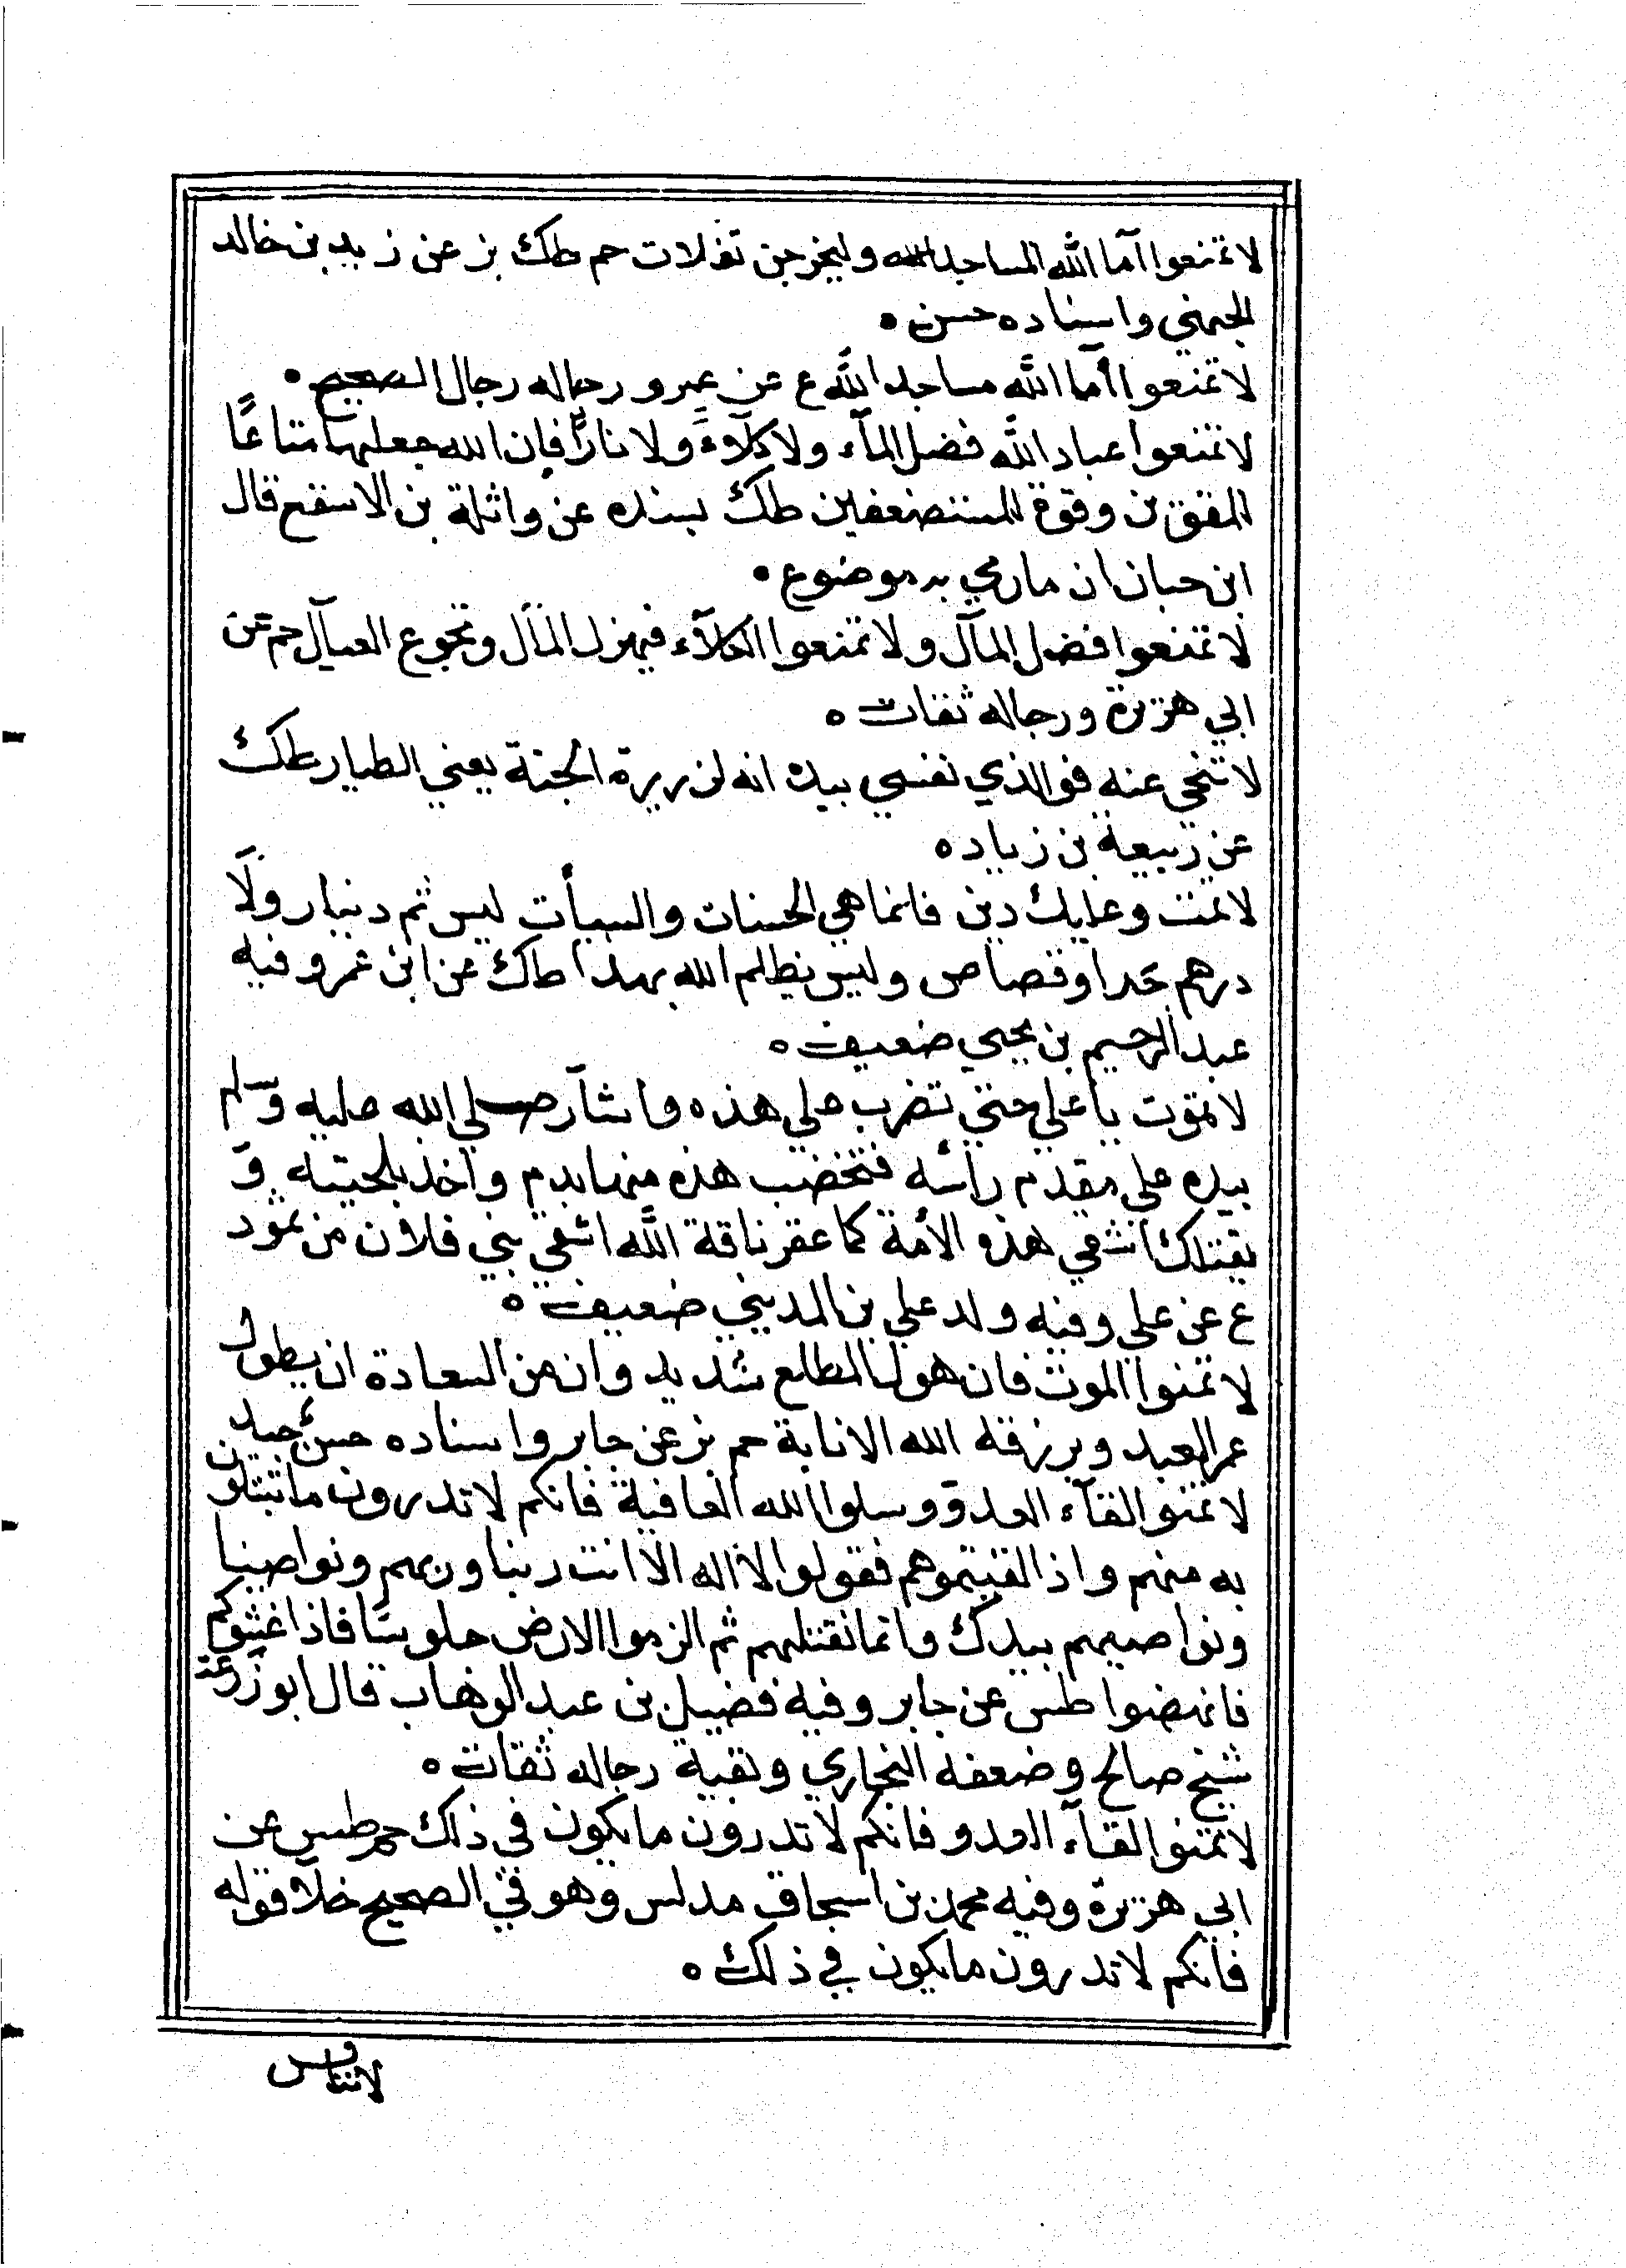 لا تمنعوا آما الله المساجد الله وليخرجن تفلات حم طك بز عن زيد بن خالد
الجهني واسناده حسن ٥
لا تمنعوا أما الله مساجد الله ع عن عمر و رجاله رجال الصحيح ٥
لا تمنعوا عباد الله فضل المآء ولا كلاءً ولا نارًا فان الله جعلها متاعًا
للمقوين وقوة للمستضعفين طك بسنده عن واثلة بن الاسقع قال
ابن حبان ان ما رمي به موضوع ٥
لا تمنعوا فضل المآل ولا تمنعوا الكلآء فيهزل المآل وتجوع العيال حم عن
ابي هريرة ورجاله ثقات ٥
لا تنحي عنه فوالذي نفسي بيده انه لذريرة الجنة يعني الطيار طك
عن ربيعة بن زياد ٥
لا تمت وعليك دين فانما هي الحسنات والسيأت ليس ثم دينار ولَا
درهم جزا وقصاص وليس يظلم الله بهذا طك عن ابن عمر وفيه
عبد الرحيم بن يحيي ضعيف ٥
لا تموت يا علي حتي تضرب علي هذه واشآر صلي الله عليه وسلم
بيده علي مقدم رأسه فتخضب هذه منها بدم واخذ بلحيته و
يقتلك اشقي هذه الأمة كما عقر ناقة الله اشقي بني فلان من ثمود
ع عن علي وفيه ولد علي بن المديني ضعيف ٥
لا تمنوا الموت فان هول المطلع شديد وان من السعادة ان يطول
عمر العبد ويرزقه الله الانابة حم بز عن جابر واسناده حسن جيد
لا تمنوا لقآء العدو وسلوا الله العافية فانكم لا تدرون ما تبتلون
به منهم واذا لقيتموهم فقولوا لا اله الا انت ربنا وربهم ونواصينا
ونواصيهم بيدك وانما تقتلهم ثم الزموا الارض جلوسًا فاذا غشوكم
فانهضوا طس عن جابر وفيه فضيل بن عبد الوهاب قال ابو زرعة
شيخ صالح وضعفه البخاري وبقية رجاله ثقات ٥
لا تمنوا لقآء العدو فانكم لا تدرون ما يكون في ذلك حم طس عن
ابي هريرة وفيه محمد بن اسحاق مدلس وهو في الصحيح خلا قوله
فانكم لا تدرون ما يكون في ذلك ٥
لا تنافس